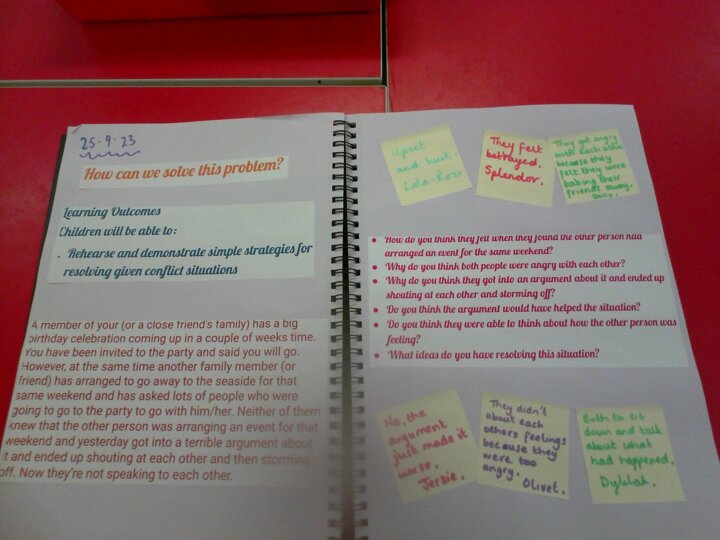 25.9.23
How can we solve this problem?
Learning Outcomes
Children will be able to:
. Rehearse and demonstrate simple strategies for
resolving given conflict situations
A member of your (or a close friend's family) has a big
birthday celebration coming up in a couple of weeks time.
You have been invited to the party and said you will go.
However, at the same time another family member (or
friend) has arranged to go away to the seaside for that
same weekend and has asked lots of people who were
going to go to the party to go with him/her. Neither of them
knew that the other person was arranging an event for that
weekend and yesterday got into a terrible argument about
it and ended up shouting at each other and then storming
off. Now they're not speaking to each other.
upset
and hurt.
Lola-Rose
They felt
betrayed.
Splendor.
They got angry
with each other
because they
felt they were
taking their
friends away.
• How do you think they felt when they found the other person had
arranged an event for the same weekend?
• Why do you think both people were angry with each other?
• Why do you think they got into an argument about it and ended up
shouting at each other and storming off?
• Do you think the argument would have helped the situation?
• Do you think they were able to think about how the other person was
feeling?
• What ideas do you have resolving this situation?
No, the
argument
just made it
worse.
Jersie.
They didn't
about each
others feelings
because they
were too
angry. Olivet.
Both to sit
down and talk
about what
had happened.
Dylilah.